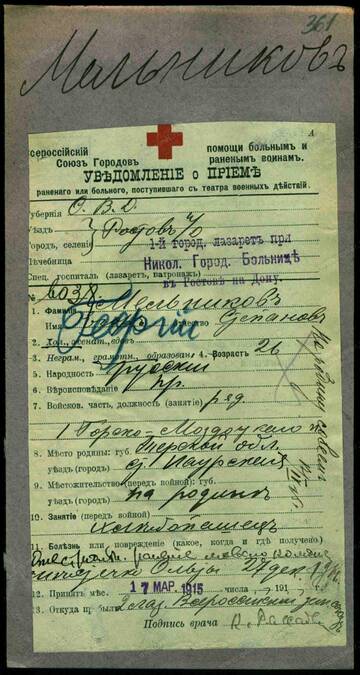 361
Мельниковъ
Всероссійскій Союзъ Городовъ помощи больнымъ и раненымъ воинамъ.
УВѢДОМЛЕНІЕ о ПРІЕМѢ
раненаго или больного, поступившаго съ театра военныхъ дѣйствій.
Губернія О. В. Д.
Уѣздъ Ростовъ н/Д
Городъ, селеніе 1-й город. лазаретъ при
Лечебница Никол. Город. Больницѣ
Спец. госпиталь (лазаретъ, патронажъ) въ Ростовѣ на Дону
№ 6038
1. Фамилія Мельниковъ
Имя Георгій Отчество Степанов
2. Хол., женат., вдов.
3. Неграм., грамотн., образован. 4. Возрастъ 26
5. Народность Русскій
6. Вѣроисповѣданіе пр.
7. Войсков. часть, должность (занятіе) ряд.
1 Горско-Моздокскаго п.
8. Мѣсто родины: губ. Терской обл.
уѣздъ (городъ) ст. Наурская
9. Мѣстожительство (передъ войной): губ.
уѣздъ (городъ) на родинѣ
10. Занятіе (передъ войной)
Хлѣбопашецъ
11. Болѣзнь или поврежденіе (какое, когда и гдѣ получено)
29 дек.
12. Принятъ мѣс. 17 МАР. 1915 числа 191
13. Откуда прибылъ 2 лаз. Всероссійскій
Подпись врача